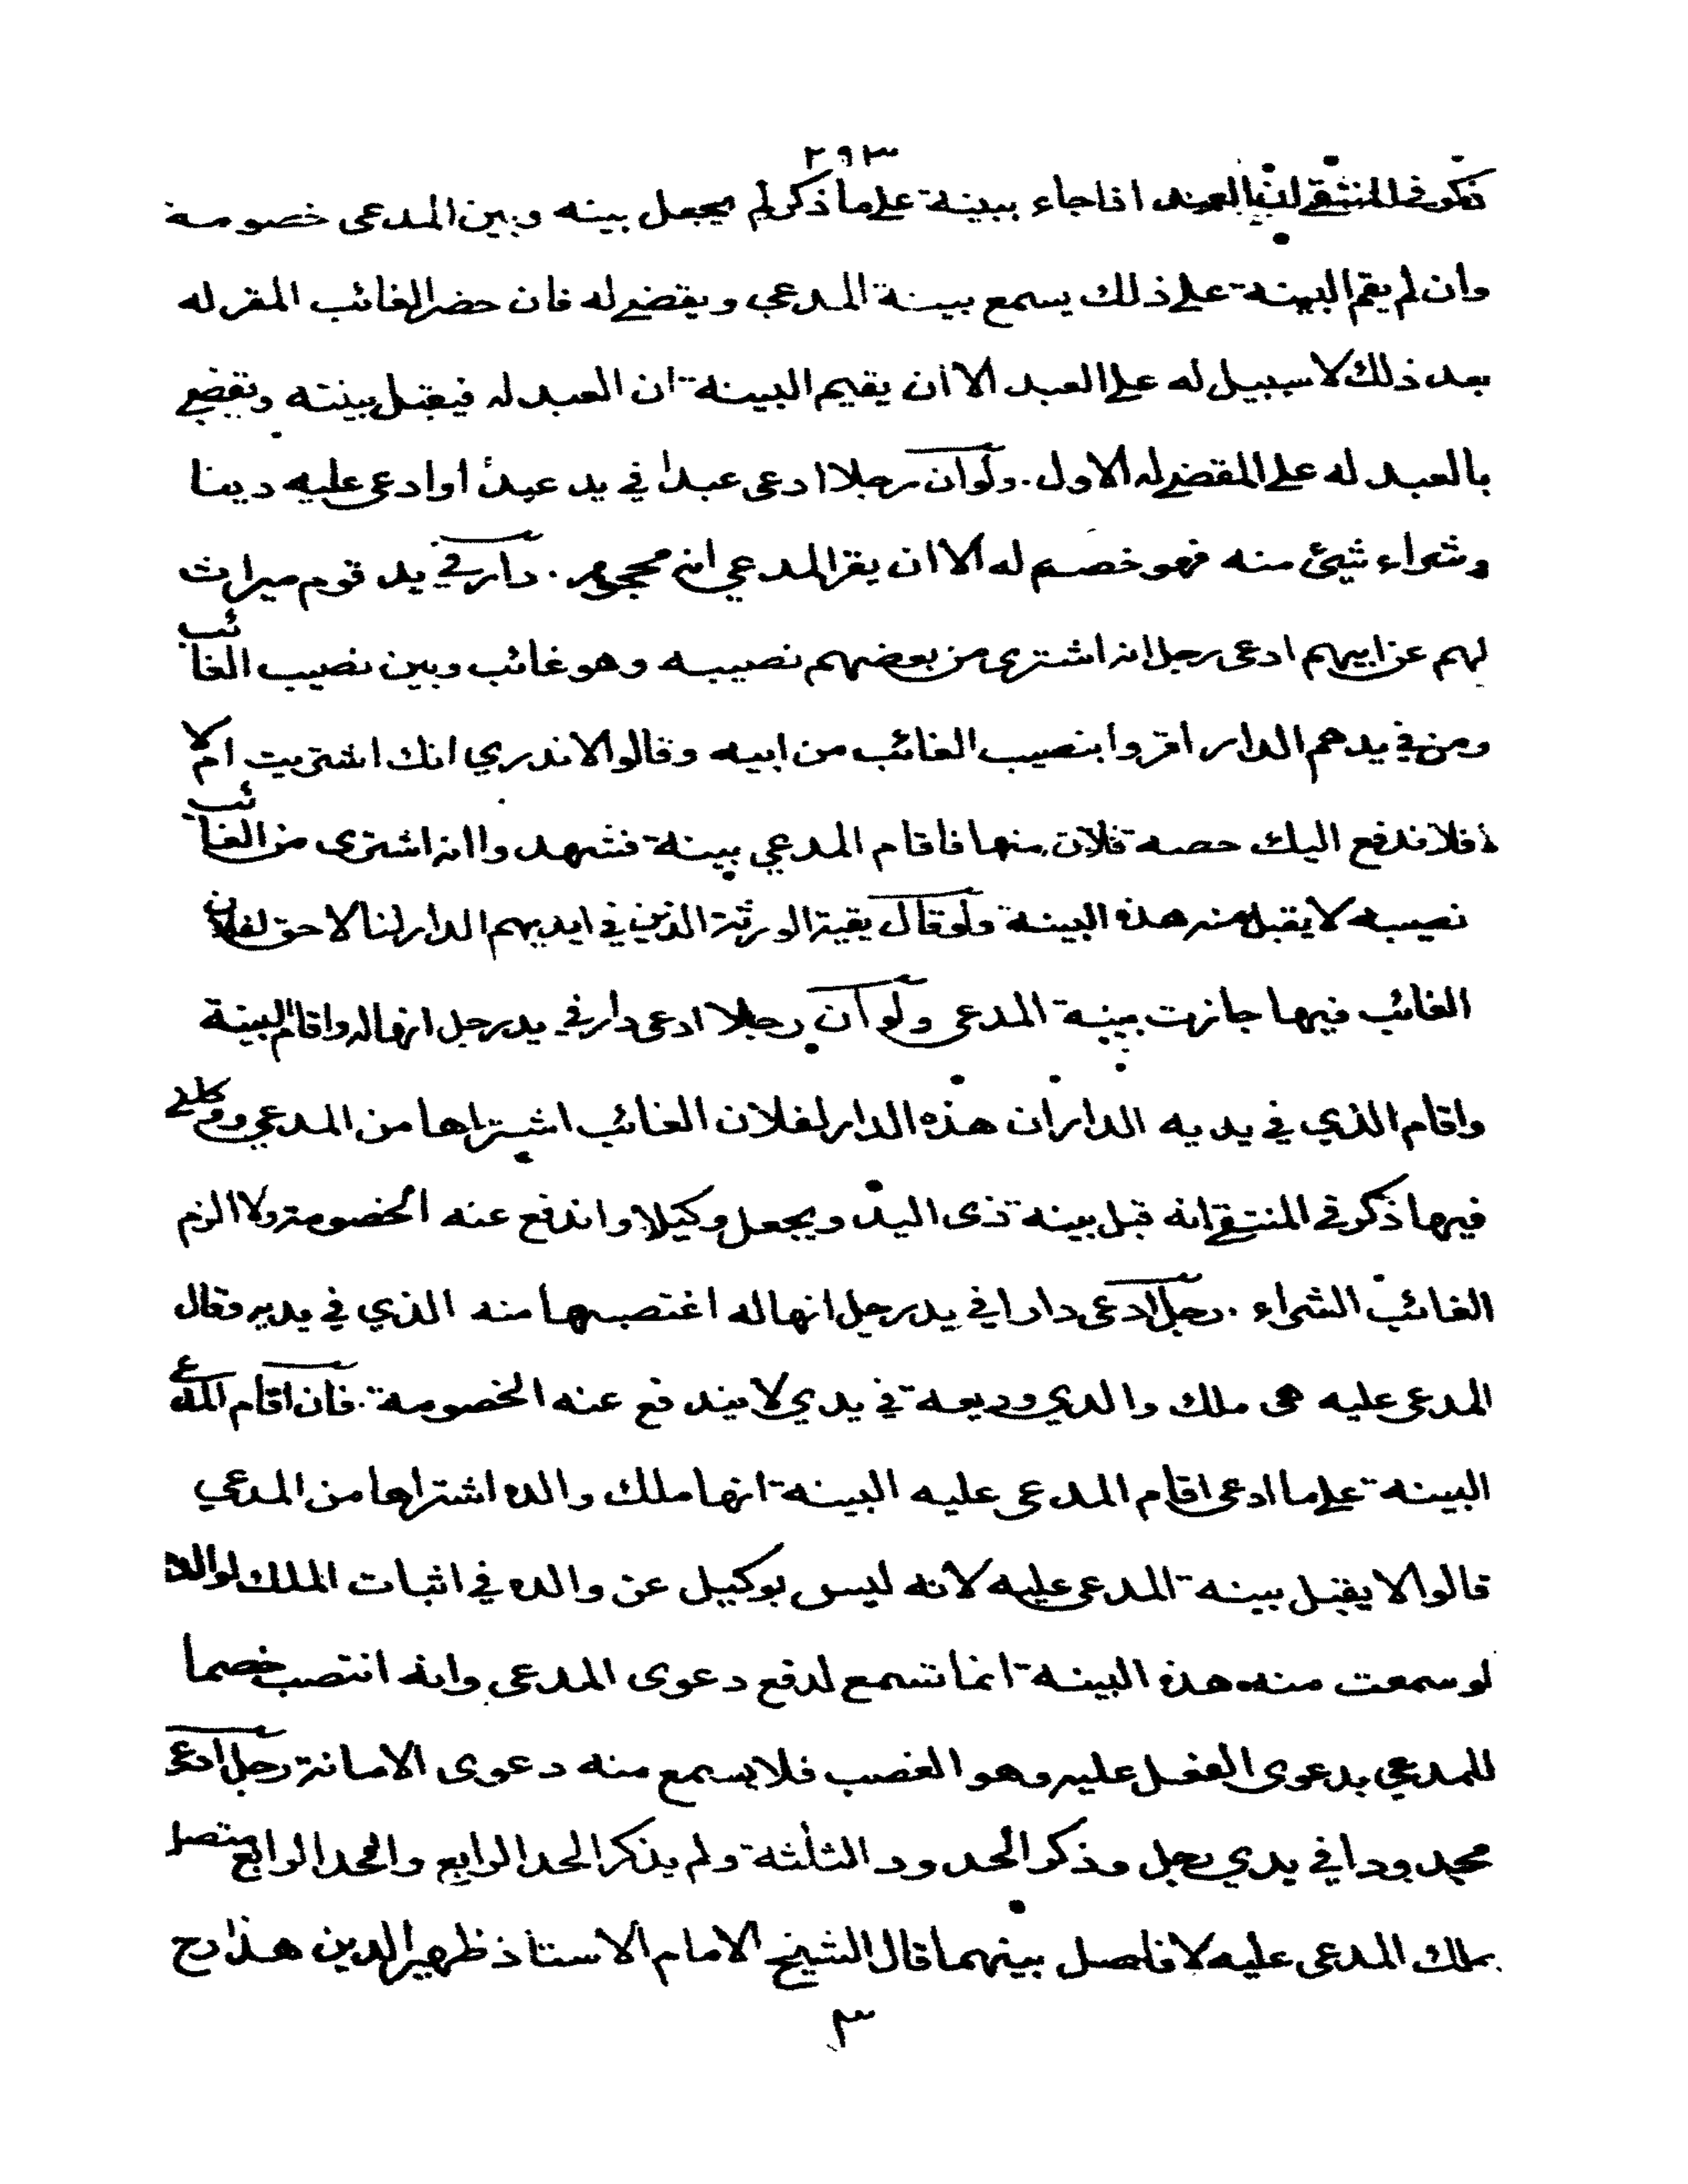 ٢٩٣
ذكر في المنتقى ان العبد اذا جاء ببينة على ما ذكر لم يجعل بينه وبين المدعى خصومة
وان لم يقم البينة على ذلك يسمع بينة المدعي ويقضى له فان حضر الغائب المقر له
بعد ذلك لا سبيل له على العبد الا ان يقيم البينة ان العبد له فيقبل بينته ويقضى
بالعبد له على المقضى له الاول . ولو ان رجلا ادعى عبدا في يد عبد أو ادعى عليه دينا
وشراء شيئ منه فهو خصم له الا ان يقر المدعي انه محجور . دار في يد قوم ميراث
لهم عن ابيهم ادعى رجل انه اشترى من بعضهم نصيبه وهو غائب وبين نصيب الغائب
ومن في يدهم الدار اقروا بنصيب الغائب من ابيه وقالوا لا ندري انك اشتريت ام لا
فلا ندفع اليك حصة فلان منها فاقام المدعي بينة فشهدوا انه اشترى من الغائب
نصيبه لا يقبل منه هذه البينة ولو قال بقية الورثة الذين في ايديهم الدار لنا لا حق لفلان
الغائب فيها جازت بينة المدعى ولو ان رجلا ادعى دار في يد رجل انها له واقام البينة
واقام الذي في يديه الدار ان هذه الدار لفلان الغائب اشتراها من المدعي ووكلني
فيها ذكر في المنتقى انه قبل بينة ذى اليد ويجعل وكيلا واندفع عنه الخصومة ولا الزم
الغائب الشراء . رجل ادعى دارا في يد رجل انها له اغتصبها منه الذي في يديه فقال
المدعى عليه هى ملك والدي وديعة في يدي لا يندفع عنه الخصومة . فان اقام المدعى
البينة على ما ادعى اقام المدعى عليه البينة انها ملك والده اشتراها من المدعي
قالوا لا يقبل بينة المدعى عليه لانه ليس بوكيل عن والده في اثبات الملك لوالده
لو سمعت منه هذه البينة انما تسمع لدفع دعوى المدعى وانه انتصب خصما
للمدعي بدعوى الفعل عليه وهو الغصب فلا يسمع منه دعوى الامانة رجل ادعى
محدودا في يدي رجل وذكر الحدود الثلثة ولم يذكر الحد الرابع والحد الرابع متصل
بملك المدعى عليه لا فاصل بينهما قال الشيخ الامام الاستاذ ظهير الدين هذا رح
٣